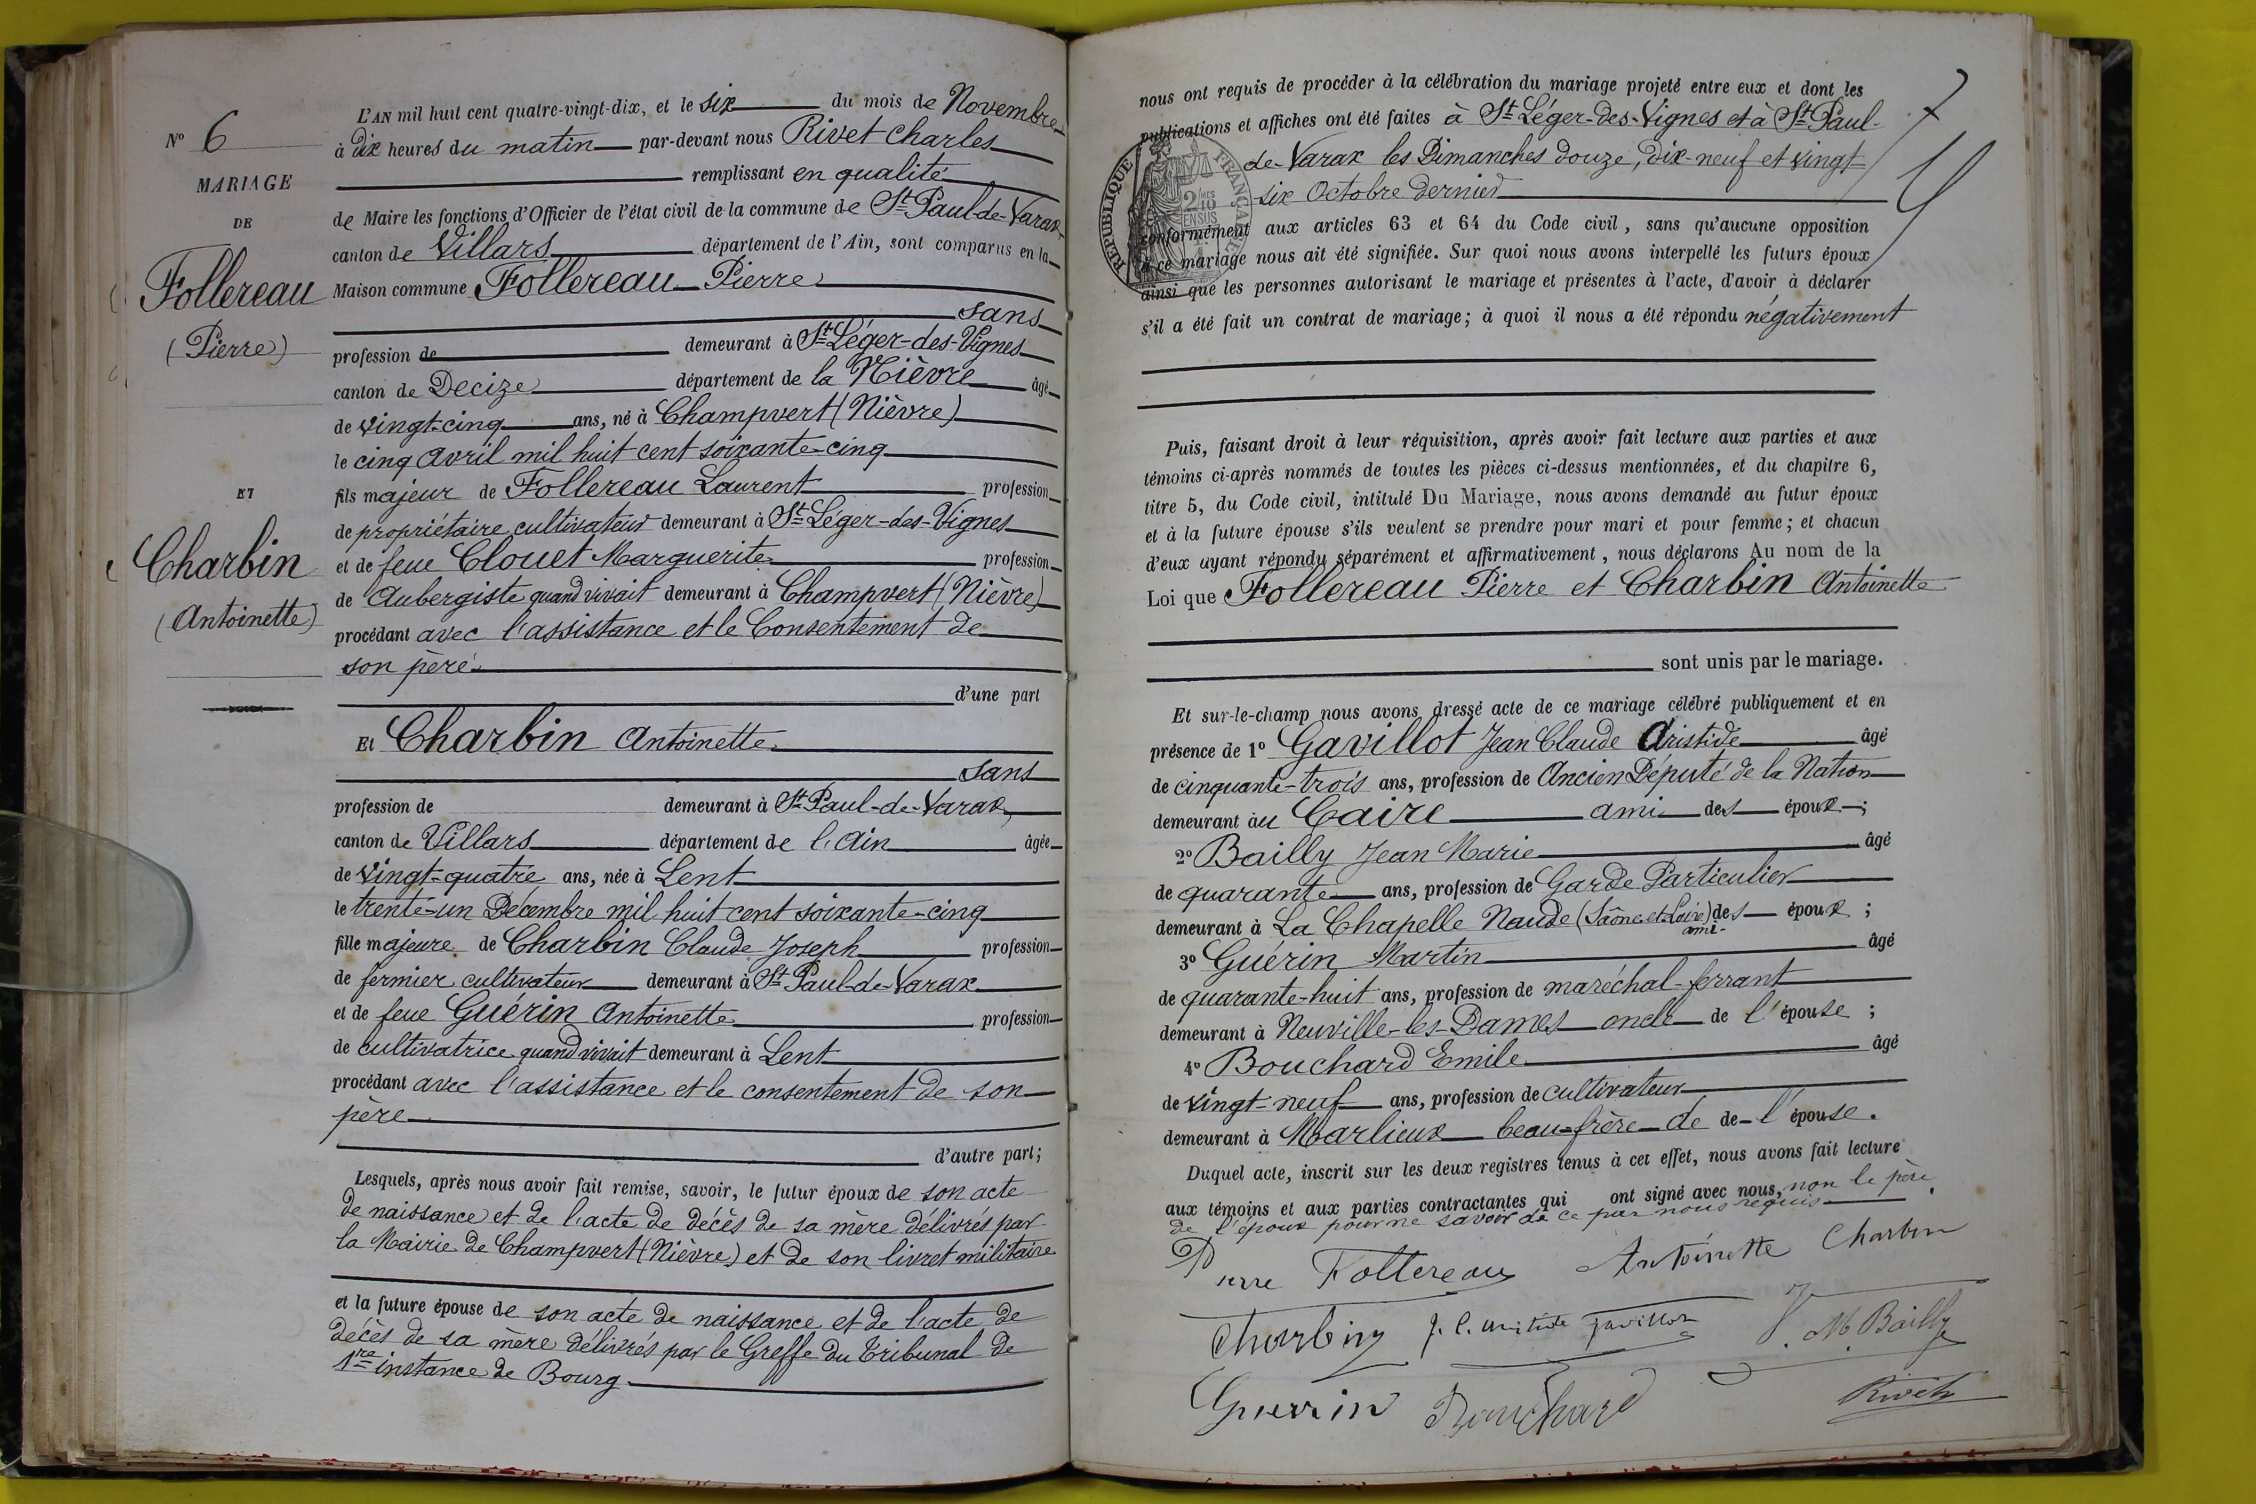 N° 6
MARIAGE
DE
Follereau
(Pierre)
ET
Charbin
(Antoinette)
L'AN mil huit cent quatre-vingt-dix, et le six du mois de Novembre
à dix heures du matin par-devant nous Rivet Charles
remplissant en qualité
de Maire les fonctions d'Officier de l'état civil de la commune de St Paul-de-Varax
canton de Villars département de l'Ain, sont comparus en la
Maison commune Follereau Pierre
sans
profession de demeurant à St Léger-des-Vignes
canton de Decize département de la Nièvre âgé
de vingt-cinq ans, né à Champvert (Nièvre)
le cinq avril mil huit cent soixante-cinq
fils majeur de Follereau Laurent profession
de propriétaire cultivateur demeurant à St Léger-des-Vignes
et de feue Clouet Marguerite profession
de Aubergiste quand vivait demeurant à Champvert (Nièvre)
procédant avec l'assistance et le Consentement de
son père
d'une part
Et Charbin Antoinette
sans
profession de demeurant à St Paul-de-Varax
canton de Villars département de l'Ain âgée
de vingt-quatre ans, née à Lent
le trente-un Décembre mil huit cent soixante-cinq
fille majeure de Charbin Claude Joseph profession
de fermier cultivateur demeurant à St Paul-de-Varax
et de feue Guérin Antoinette profession
de cultivatrice quand vivait demeurant à Lent
procédant avec l'assistance et le consentement de son
père
d'autre part;
Lesquels, après nous avoir fait remise, savoir, le futur époux de son acte
de naissance et de l'acte de décès de sa mère délivrés par
la Mairie de Champvert (Nièvre) et de son livret militaire
et la future épouse de son acte de naissance et de l'acte de
décès de sa mère délivrés par le Greffe du Tribunal de
1re instance de Bourg
nous ont requis de procéder à la célébration du mariage projeté entre eux et dont les
publications et affiches ont été faites à St Léger-des-Vignes et à St Paul-
de-Varax les Dimanches douze, dix-neuf et vingt-
six Octobre dernier
RÉPUBLIQUE FRANÇAISE
2/10 EN SUS
conformément aux articles 63 et 64 du Code civil, sans qu'aucune opposition
à ce mariage nous ait été signifiée. Sur quoi nous avons interpellé les futurs époux
ainsi que les personnes autorisant le mariage et présentes à l'acte, d'avoir à déclarer
s'il a été fait un contrat de mariage; à quoi il nous a été répondu négativement
Puis, faisant droit à leur réquisition, après avoir fait lecture aux parties et aux
témoins ci-après nommés de toutes les pièces ci-dessus mentionnées, et du chapitre 6,
titre 5, du Code civil, intitulé Du Mariage, nous avons demandé au futur époux
et à la future épouse s'ils veulent se prendre pour mari et pour femme; et chacun
d'eux ayant répondu séparément et affirmativement, nous déclarons Au nom de la
Loi que Follereau Pierre et Charbin Antoinette
sont unis par le mariage.
Et sur-le-champ nous avons dressé acte de ce mariage célébré publiquement et en
présence de 1° Gavillot Jean Claude Aristide âgé
de cinquante-trois ans, profession de Ancien Député de la Nation
demeurant au Caire ami des époux;
2° Bailly Jean Marie âgé
de quarante ans, profession de Garde Particulier
demeurant à La Chapelle Naude (Saône et Loire) ami des époux;
3° Guérin Martin âgé
de quarante-huit ans, profession de maréchal-ferrant
demeurant à Neuville-les-Dames oncle de l'épouse;
4° Bouchard Emile âgé
de vingt-neuf ans, profession de cultivateur
demeurant à Marlieux beau-frère de de l'épouse.
Duquel acte, inscrit sur les deux registres tenus à cet effet, nous avons fait lecture
aux témoins et aux parties contractantes qui ont signé avec nous, non le père
de l'époux pour ne savoir de ce par nous requis.
Pierre Follereau Antoinette Charbin
Charbin J. C. Aristide Gavillot J. M. Bailly
Guerrin Bouchard Rivet